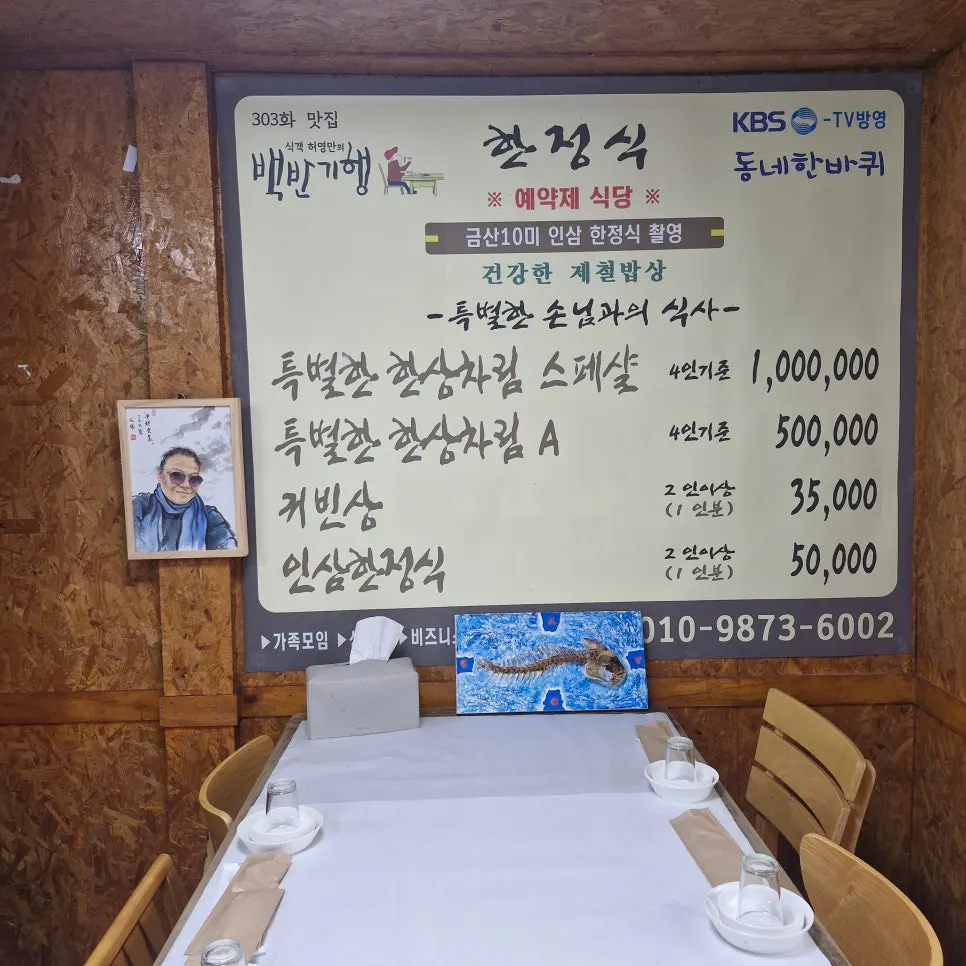 303화 맛집
식객 허영만의
백반기행
한정식
※ 예약제 식당 ※
KBS -TV방영
동네한바퀴
금산10미 인삼 한정식 촬영
건강한 제철밥상
-특별한 손님과의 식사-
특별한 한상차림 스페샬 4인기준 1,000,000
특별한 한상차림 A 4인기준 500,000
귀빈상 2인이상 (1인분) 35,000
인삼한정식 2인이상 (1인분) 50,000
▶가족모임 ▶ 비즈니 010-9873-6002